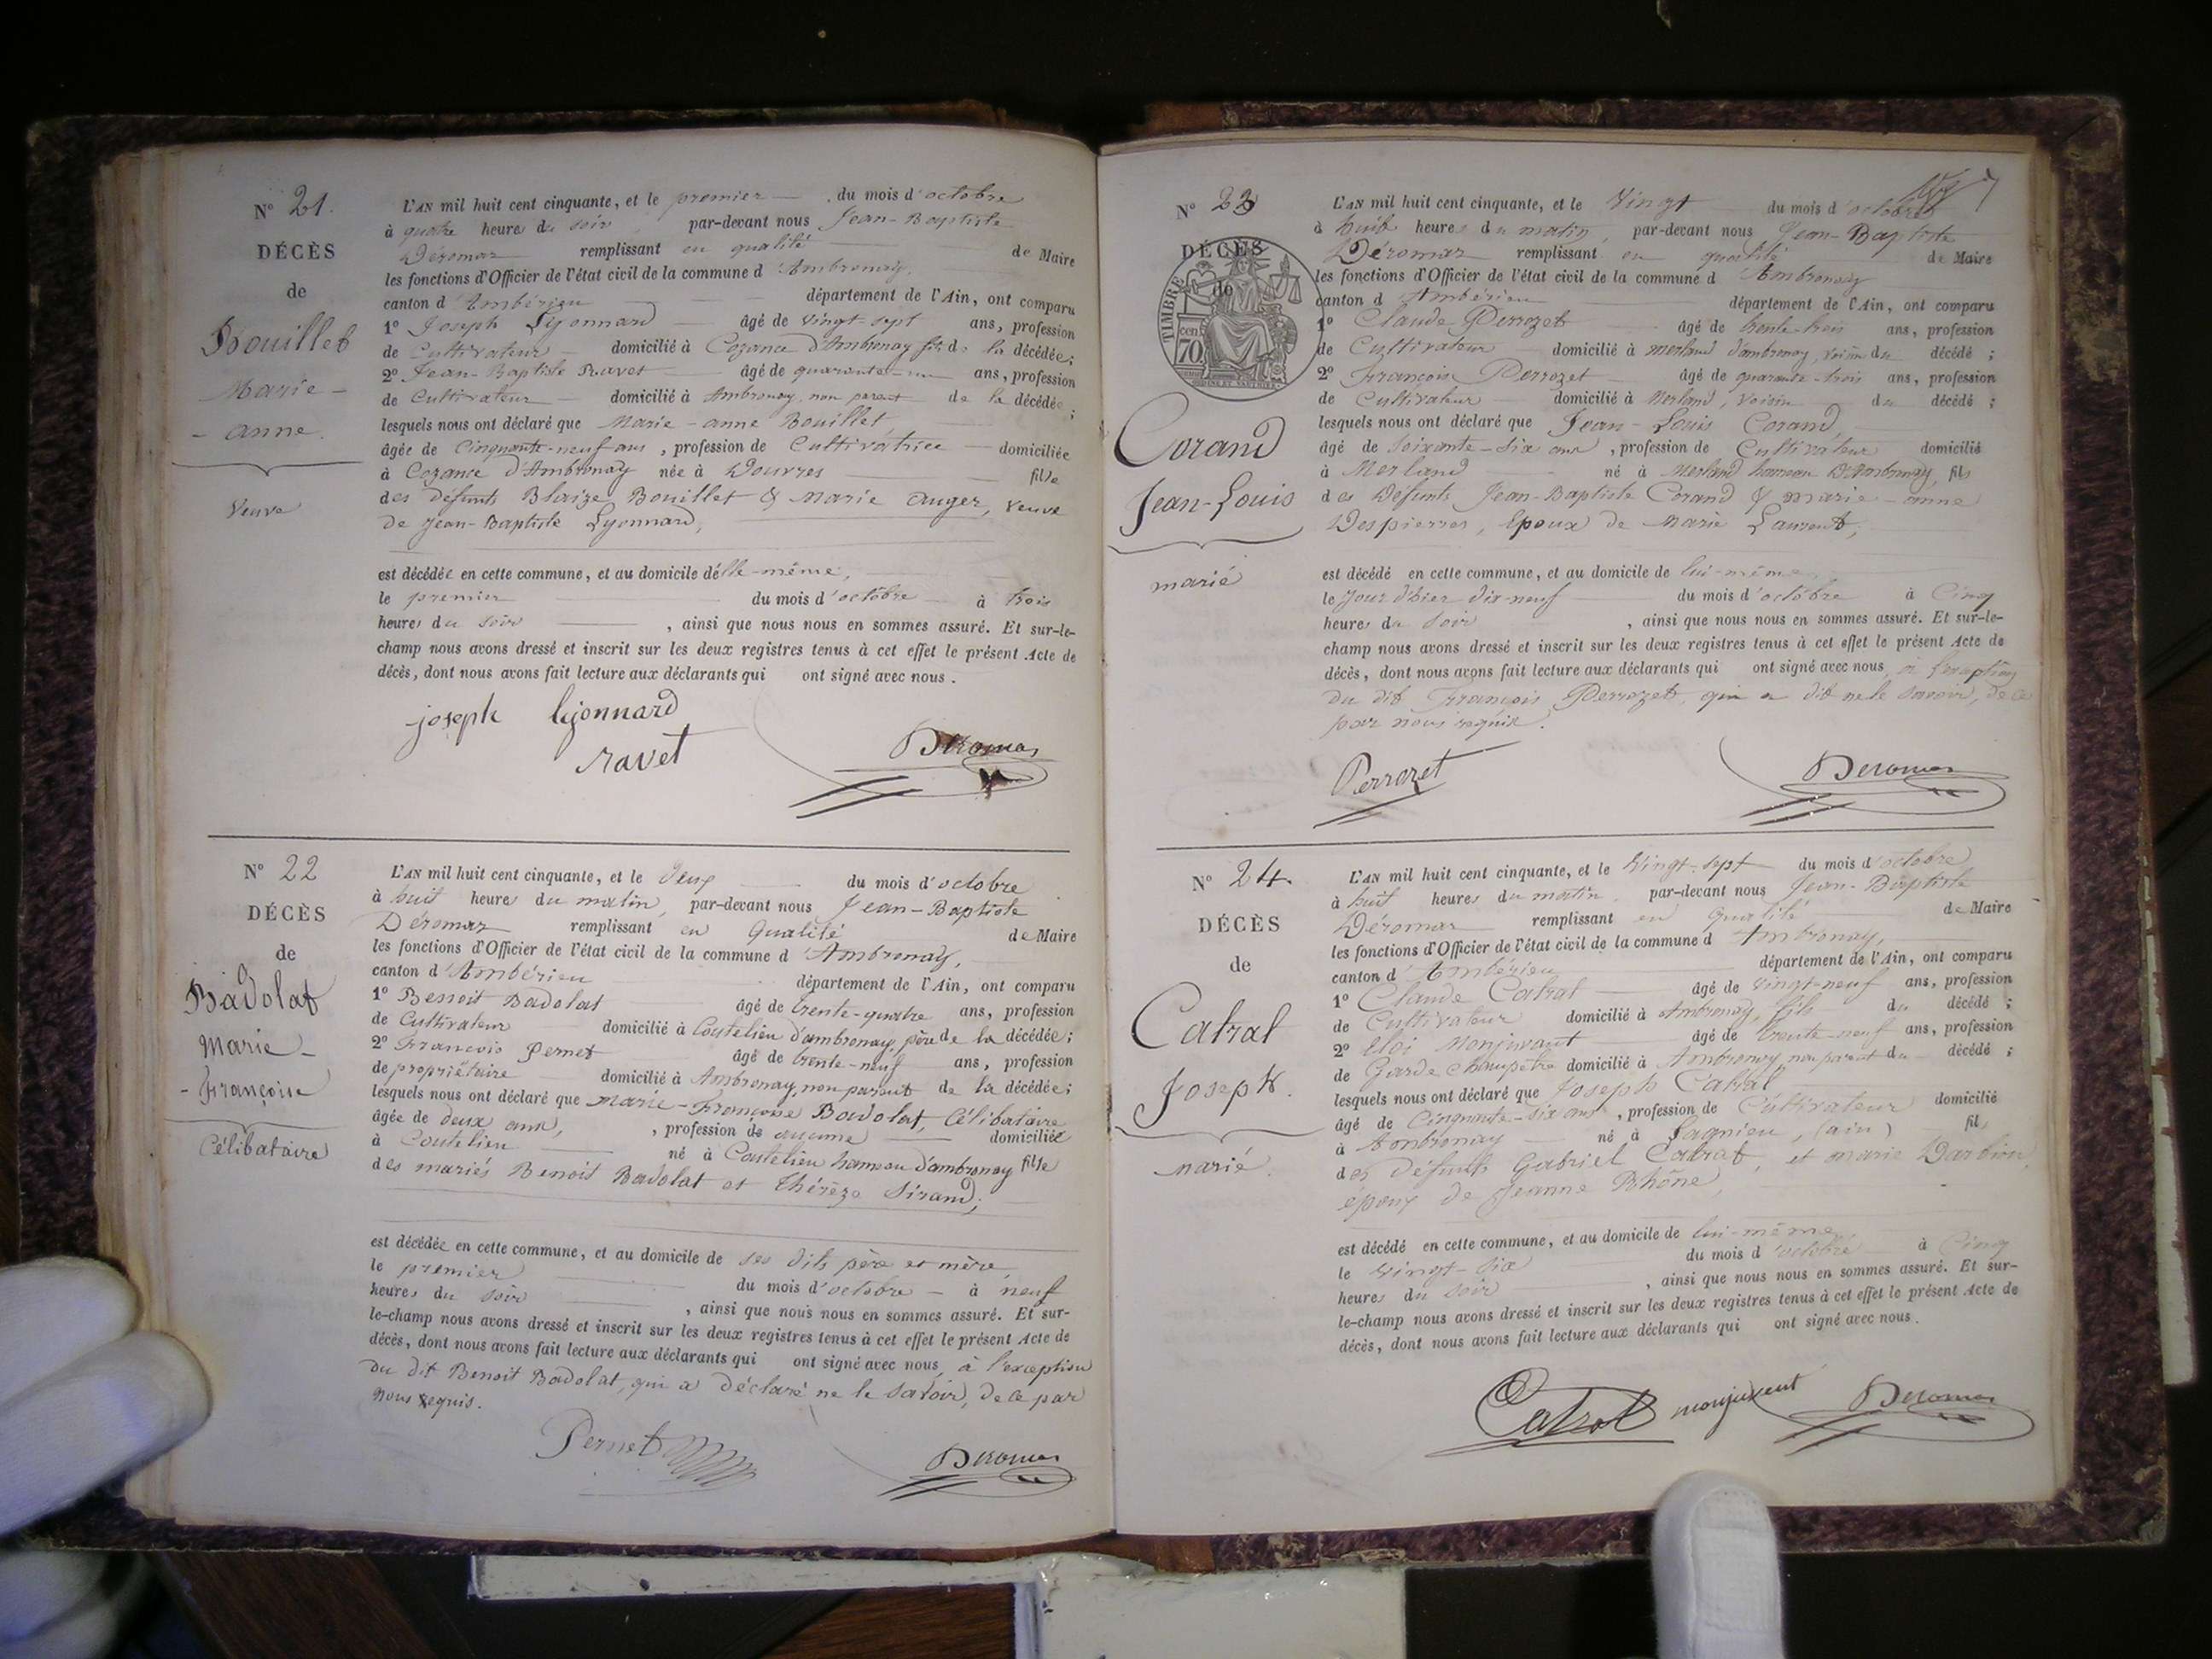 N° 21.
DÉCÈS
de
Bouillet
Marie-
-anne.
Veuve
L'AN mil huit cent cinquante, et le premier du mois d'octobre
à quatre heures du soir par-devant nous Jean-Baptiste
Déromas remplissant en qualité de Maire
les fonctions d'Officier de l'état civil de la commune d'Ambronay,
canton d'Ambérieu département de l'Ain, ont comparu
1° Joseph Lyonnard âgé de vingt-sept ans, profession
de Cultivateur domicilié à Cozance d'Ambronay fils de la décédée;
2° Jean-Baptiste Ravet âgé de quarante-un ans, profession
de Cultivateur domicilié à Ambronay, non parent de la décédée;
lesquels nous ont déclaré que Marie-anne Bouillet,
âgée de Cinquante-neuf ans, profession de Cultivatrice domiciliée
à Cozance d'Ambronay née à Douvres fille
des défunts Blaize Bouillet & Marie Auger, veuve
de Jean-Baptiste Lyonnard,
est décédée en cette commune, et au domicile d'elle-même,
le premier du mois d'octobre à trois
heures du soir, ainsi que nous nous en sommes assuré. Et sur-le-
champ nous avons dressé et inscrit sur les deux registres tenus à cet effet le présent Acte de
décès, dont nous avons fait lecture aux déclarants qui ont signé avec nous.
joseph lyonnard
ravet
Deromas
N° 22
DÉCÈS
de
Badolat
Marie-
-Françoise
Célibataire
L'AN mil huit cent cinquante, et le Deux du mois d'octobre
à huit heures du matin, par-devant nous Jean-Baptiste
Déromas remplissant en Qualité de Maire
les fonctions d'Officier de l'état civil de la commune d'Ambronay,
canton d'Ambérieu département de l'Ain, ont comparu
1° Benoit Badolat âgé de trente-quatre ans, profession
de Cultivateur domicilié à Coutelieu d'ambronay, père de la décédée;
2° François Pernet âgé de trente-neuf ans, profession
de propriétaire domicilié à Ambronay, non parent de la décédée;
lesquels nous ont déclaré que Marie-Françoise Badolat, Célibataire
âgée de deux ans, profession de aucune domiciliée
à Coutelieu né à Coutelieu hameau d'ambronay fille
des mariés Benoit Badolat et Thérèze Sirand;
est décédée en cette commune, et au domicile de ses dits père et mère
le premier du mois d'octobre à neuf
heures du soir, ainsi que nous nous en sommes assuré. Et sur-
le-champ nous avons dressé et inscrit sur les deux registres tenus à cet effet le présent Acte de
décès, dont nous avons fait lecture aux déclarants qui ont signé avec nous, à l'exception
du dit Benoit Badolat, qui a déclaré ne le savoir, de ce par
nous requis.
Pernet
Deromas
N° 23
DÉCÈS
de
TIMBRE
70 cen
Corand
Jean-Louis
marié
L'AN mil huit cent cinquante, et le Vingt du mois d'octobre
à huit heures du matin, par-devant nous Jean-Baptiste
Déromas remplissant en qualité de Maire
les fonctions d'Officier de l'état civil de la commune d'Ambronay
canton d'Ambérieu département de l'Ain, ont comparu
1° Claude Perrozet âgé de trente-trois ans, profession
de Cultivateur domicilié à Merland d'ambronay, voisin du décédé;
2° François Perrozet âgé de quarante-trois ans, profession
de Cultivateur domicilié à Merland, voisin du décédé;
lesquels nous ont déclaré que Jean-Louis Corand,
âgé de Soixante-six ans, profession de Cultivateur domicilié
à Merland né à Merland hameau D'Ambronay, fils
des Défunts Jean-Baptiste Corand & Marie-anne
Despierres, Epoux de Marie Laurent,
est décédé en cette commune, et au domicile de lui-même
le Jour d'hier dix-neuf du mois d'octobre à Cinq
heures du soir, ainsi que nous nous en sommes assuré. Et sur-le-
champ nous avons dressé et inscrit sur les deux registres tenus à cet effet le présent Acte de
décès, dont nous avons fait lecture aux déclarants qui ont signé avec nous, à l'exception
du dit François Perrozet, qui a dit ne le savoir, de ce
par nous requis.
Perrozet
Deromas
N° 24.
DÉCÈS
de
Catral
Joseph.
marié.
L'AN mil huit cent cinquante, et le Vingt-sept du mois d'octobre
à huit heures du matin, par-devant nous Jean-Baptiste
Déromas remplissant en Qualité de Maire
les fonctions d'Officier de l'état civil de la commune d'Ambronay,
canton d'Ambérieu département de l'Ain, ont comparu
1° Claude Catral âgé de vingt-neuf ans, profession
de Cultivateur domicilié à Ambronay, fils du décédé;
2° Eloi Monjuvent âgé de trente-neuf ans, profession
de Garde Champêtre domicilié à Ambronay, non parent du décédé;
lesquels nous ont déclaré que Joseph Catral
âgé de Cinquante-six ans, profession de Cultivateur domicilié
à Ambronay né à Lagnieu, (ain) fils
des défunts Gabriel Catral, et Marie Darbion,
époux de Jeanne Rhône,
est décédé en cette commune, et au domicile de lui-même
le Vingt-six du mois d'octobre à Cinq
heures du soir, ainsi que nous nous en sommes assuré. Et sur-
le-champ nous avons dressé et inscrit sur les deux registres tenus à cet effet le présent Acte de
décès, dont nous avons fait lecture aux déclarants qui ont signé avec nous.
Catral
monjuvent
Deromas